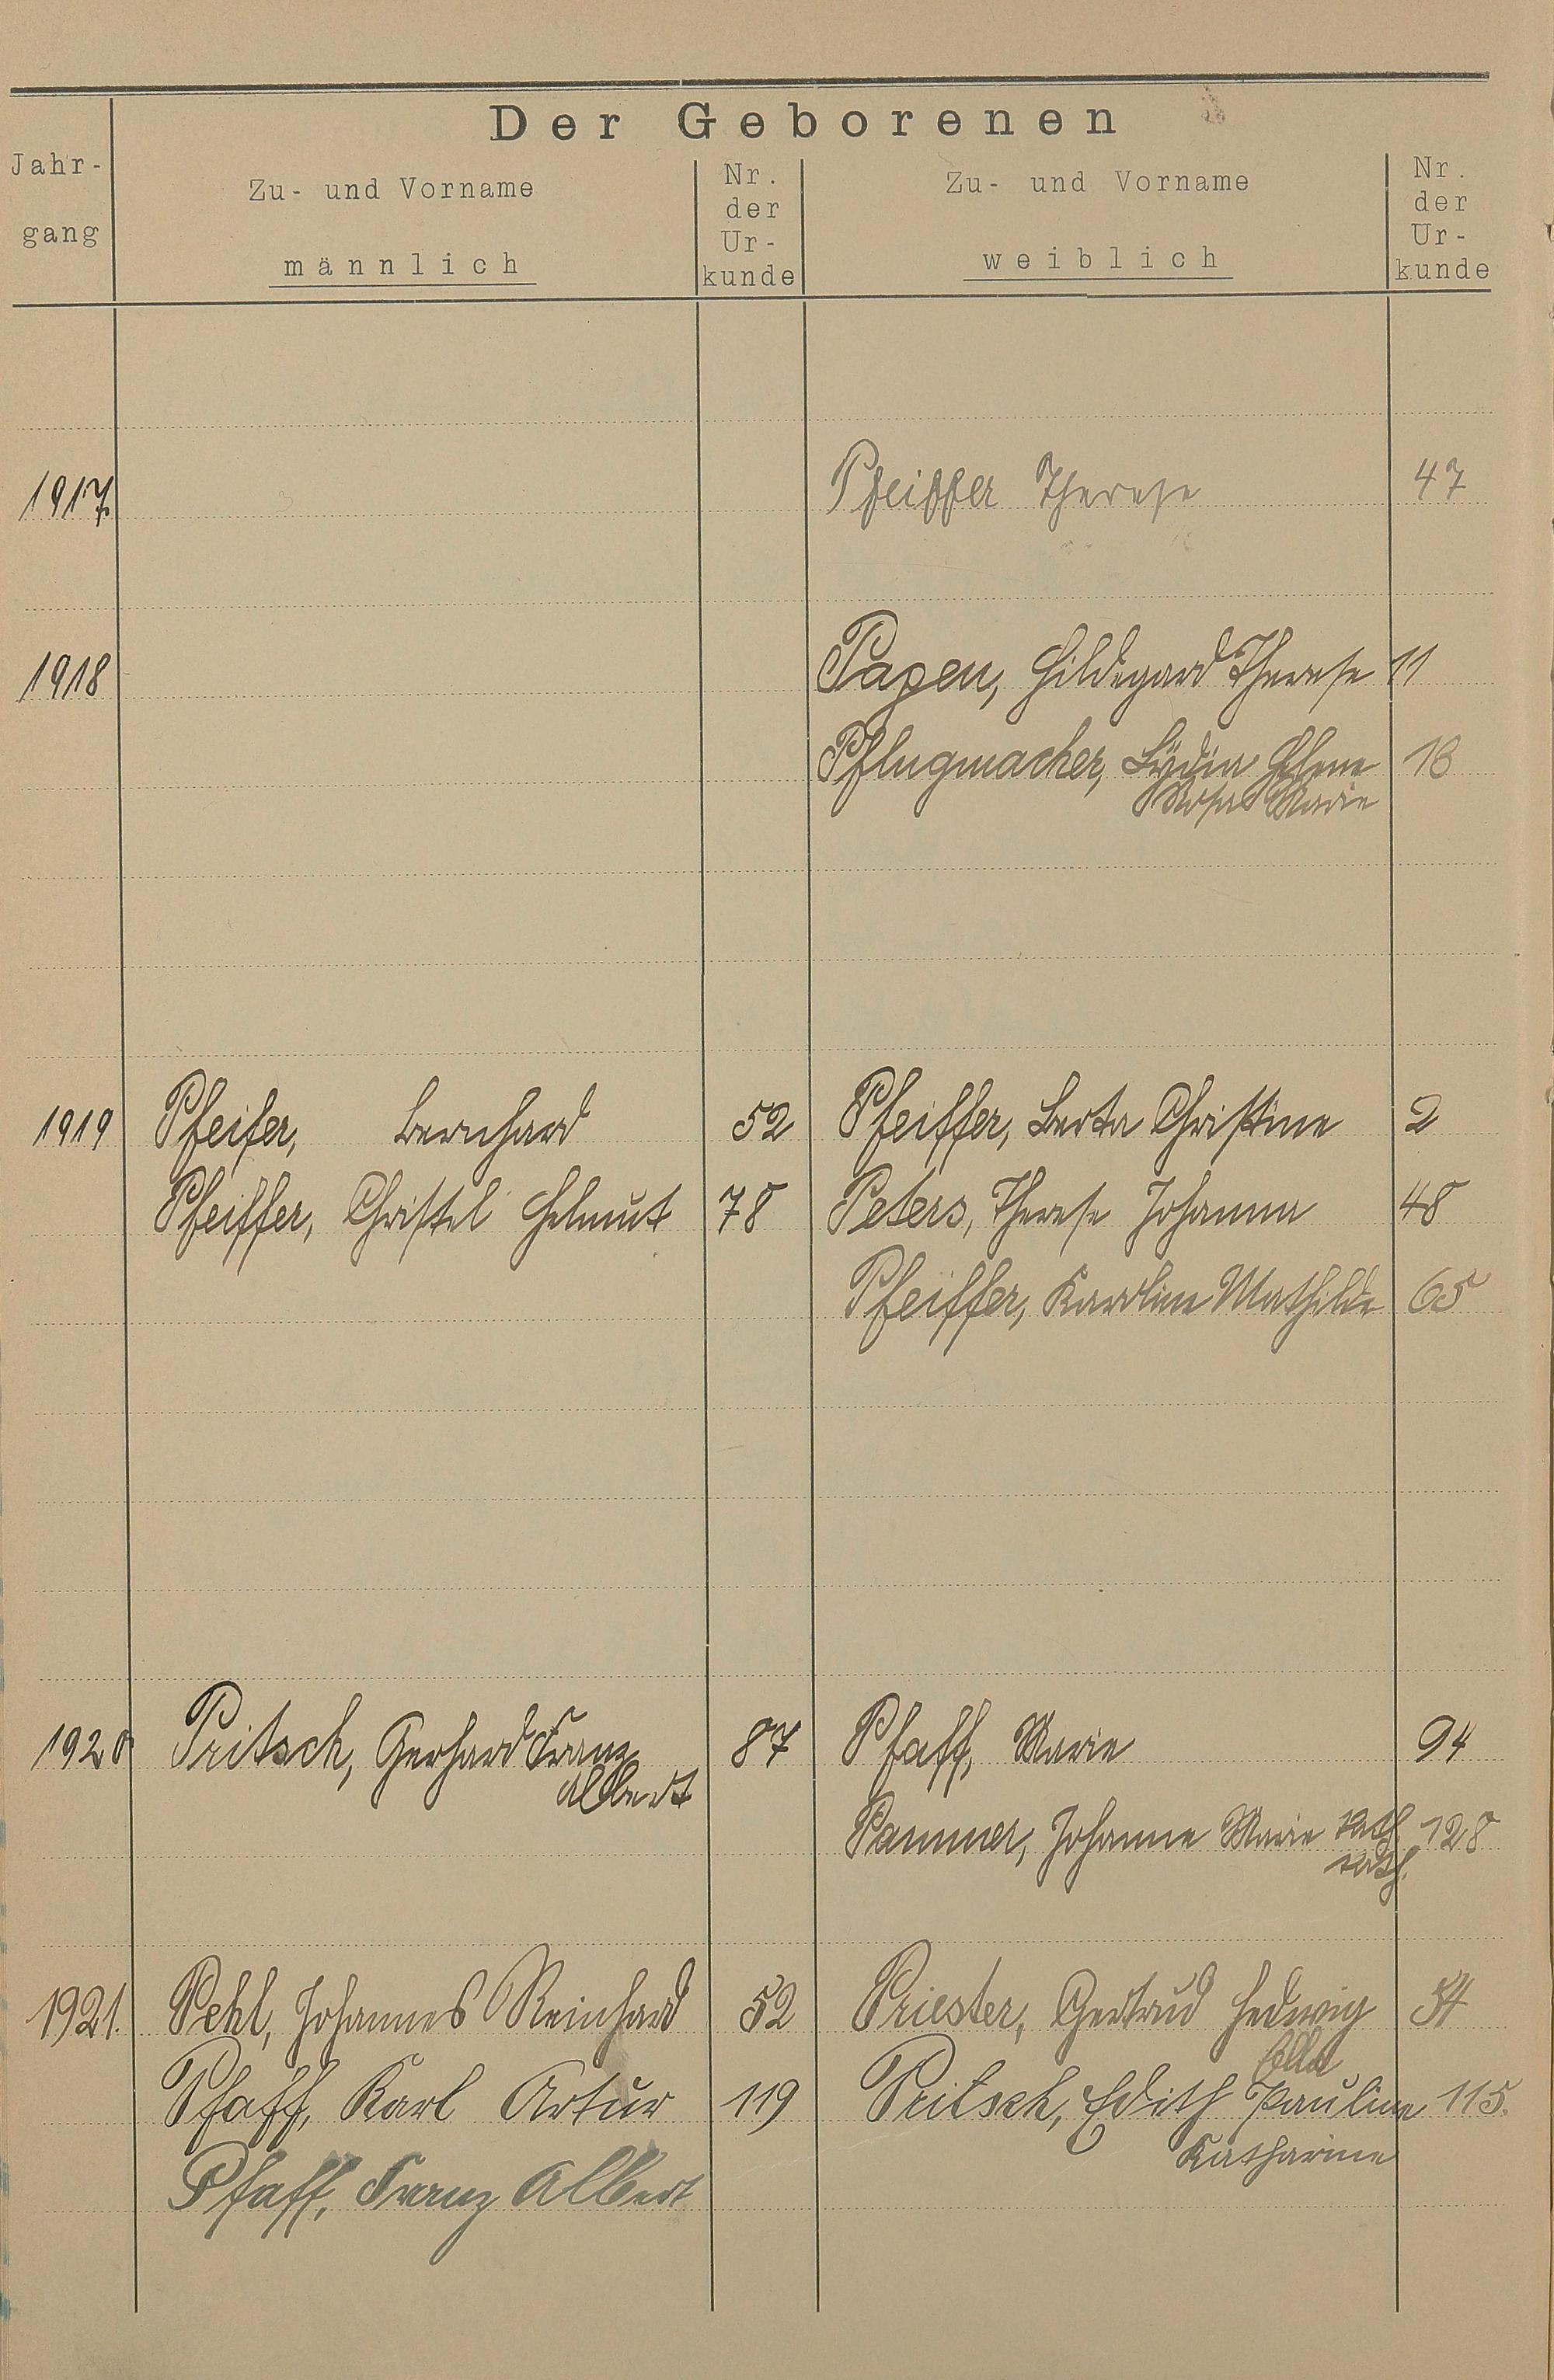 Der Geborenen
Jahr-
gang
Zu- und Vorname
männlich
Nr.
der
Ur-
kunde
Zu- und Vorname
weiblich
Nr.
der
Ur-
kunde
1917 Pfeiffer Therese 47
1918 Papen, Hildegard Therese 11
Pflugmacher, Lydia Helene 18
Rosa Marie
1919 Pfeifer, Bernhard 52 Pfeiffer, Berta Christine 2
Pfeiffer, Christel Helmut 78 Peters, Therese Johanna 48
Pfeiffer, Karoline Mathilde 65
1920 Pritsch, Gerhard Franz 87 Pfaff, Marie 94
Albert
Pammer, Johanne Marie 128
1921. Pehl, Johannes Reinhard 52 Priester, Gertrud Hedwig 54
Ella
Pfaff, Karl Artur 119 Pritsch, Edith Pauline 115.
Katharine
Pfaff, Franz Albert